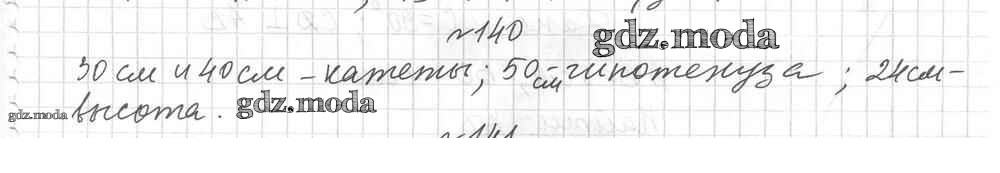 №140
gdz.moda
30 см и 40 см – катеты; 50 см – гипотенуза; 24 см –
высота.
gdz.moda
gdz.moda
№141